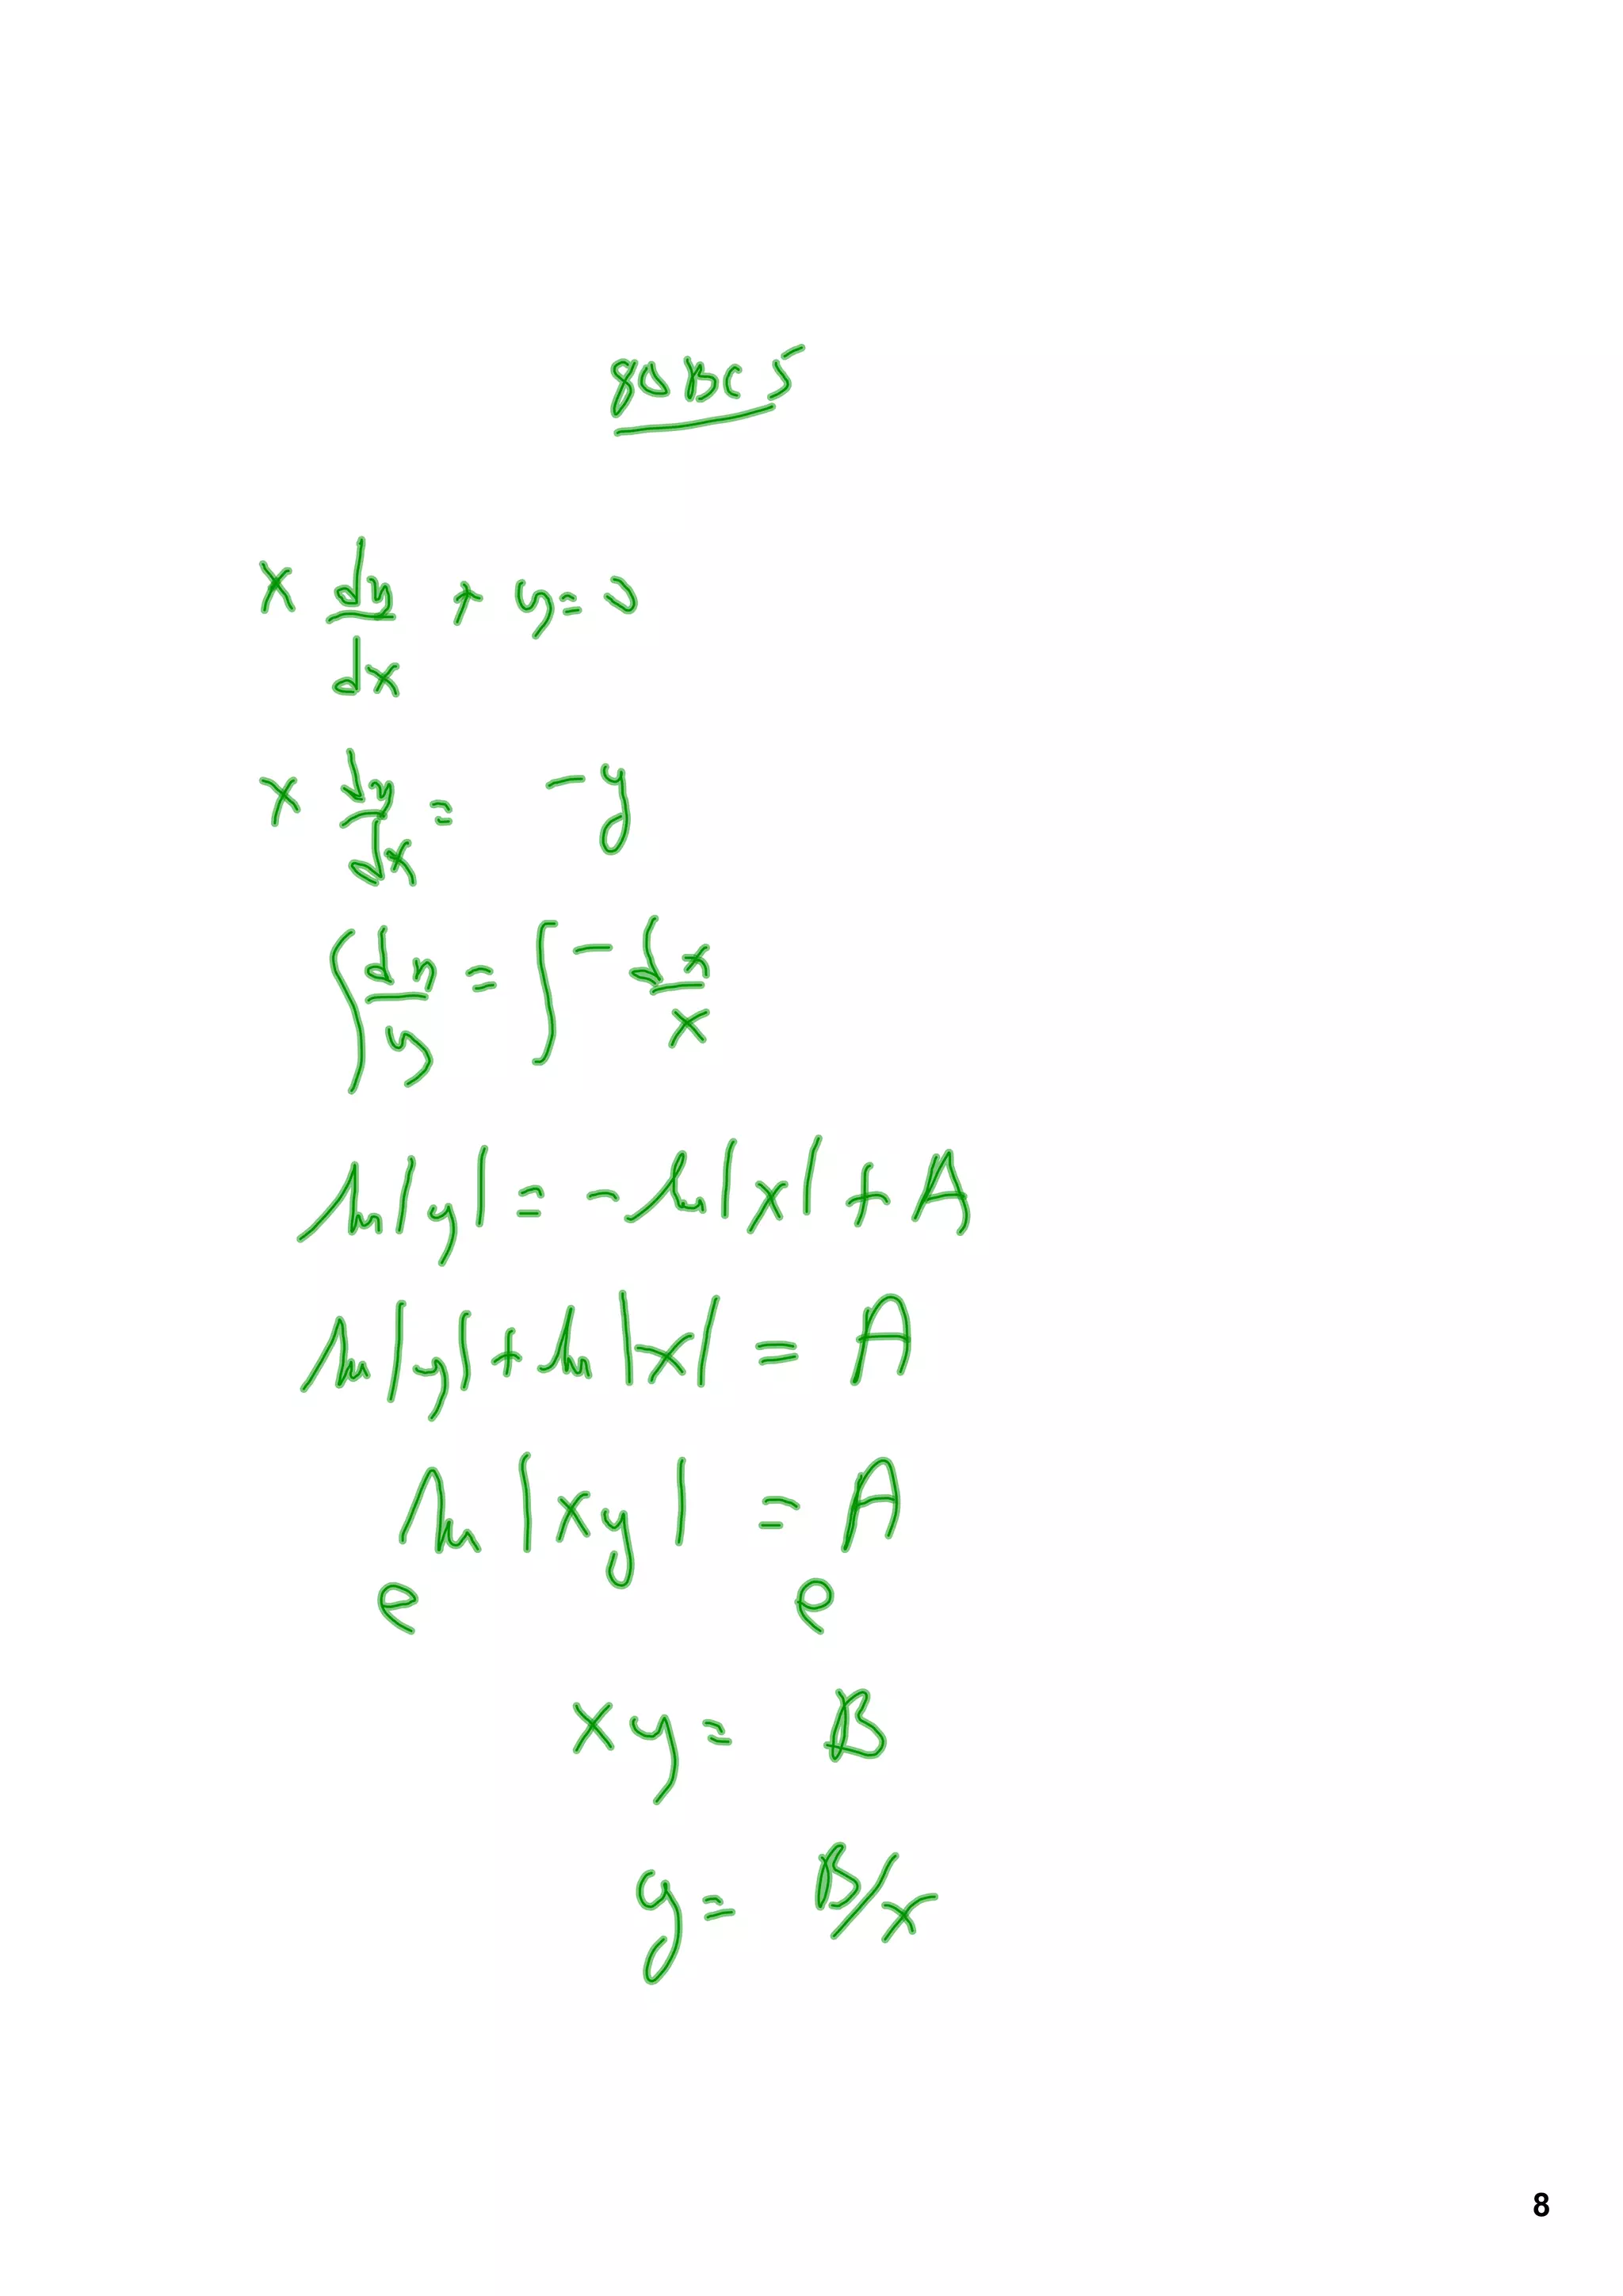 80BC5
x dy/dx + y = 0
x dy/dx = -y
∫ dy/y = ∫ - dx/x
ln|y| = -ln|x| + A
ln|y| + ln|x| = A
ln|xy| = A
e e
xy = B
y = B/x
8